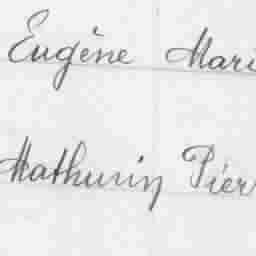 Eugène Mari
Mathurin Pier